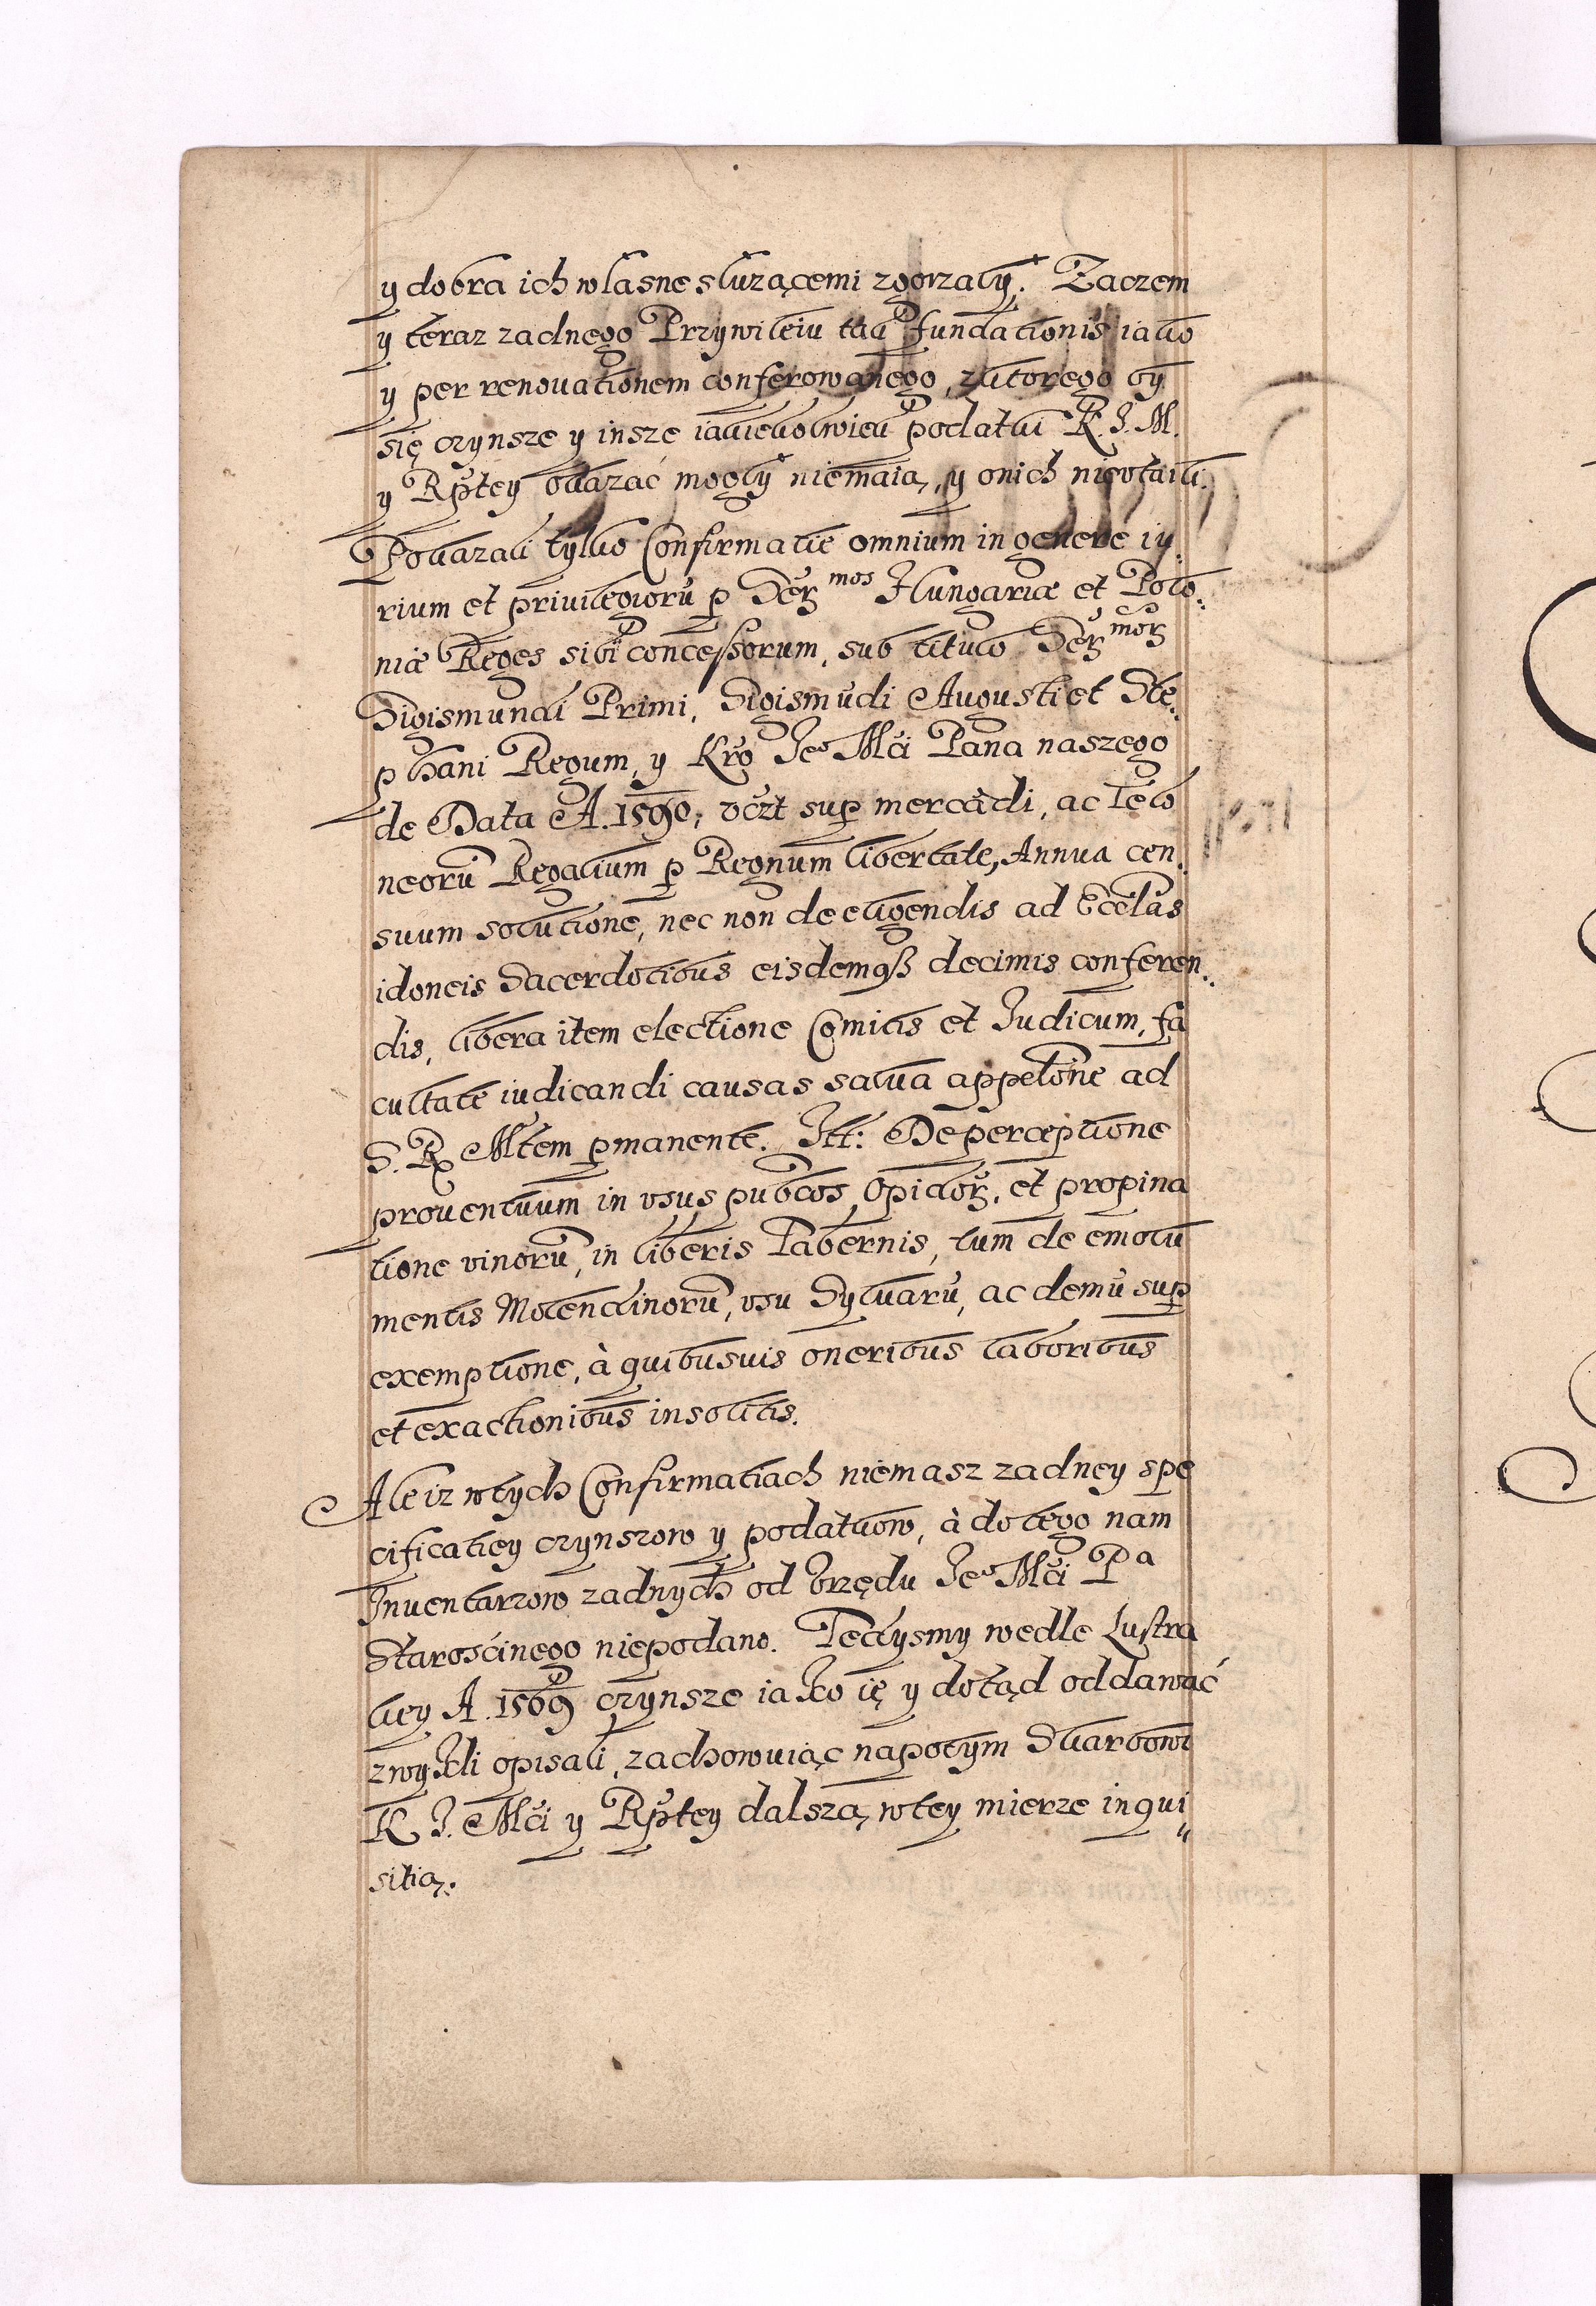 y dobra ich wlasne sluzącemi zgorzały. Zaczem
y teraz zadnego Przywileiu tak fundationis iako
y per renouationem conferowanego, zktorego by
się czynsze y insze iakiekolwiek podatki K. J. M.
y Rptey okazać mogły niemaią, y onich niewtaili.
Pokazali tylko Confirmatie omnium in genere iu,
rium et priuilegiorū p Ser mos Hungariæ et Polo,
niæ Reges sibi concessorum, sub titulo Ser mor
Sigismundi Primi, Sigismūdi Augusti et Ste,
phani Regum, y Kro Jeo Mći Pana naszego
de Data A. 1590, vczt sup mercādi, ac Telo
neorū Regalium p Regnum libertate, Annua cen,
suum solutione, nec non de eligendis ad Eccl̃as
idoneis Sacerdotibus eisdemqß decimis conferen,
dis, libera item electione Comitis et Judicum, fa
cultate iudicandi causas salua appeltõne ad
S. R. Mtem pmanente. Itt: De perceptione
prouentuum in vsus publcos Opidor, et propina
tione vinorū, in liberis Tabernis, tum de emolu
mentis Molendinorū, vsu Syluarū, ac demū sup
exemptione, à quibusuis oneribus laboribus
et exactionibus insolitis.
Ale iz wtych Confirmatiach niemasz zadney spe
cificatiey czynszow y podatkow, à do tego nam
Inuentarzow zadnych od Vrzędu Jeo Mći Pa
Starościnego niepodano. Tedysmy wedle Lustra
tiey A. 1569 czynsze iako ię y dotąd oddawać
zwykli opisali, zachowuiąc napotym Skarbowi
K J. Mći y Rptey dalszą wtey mierze inqui,
sitią.